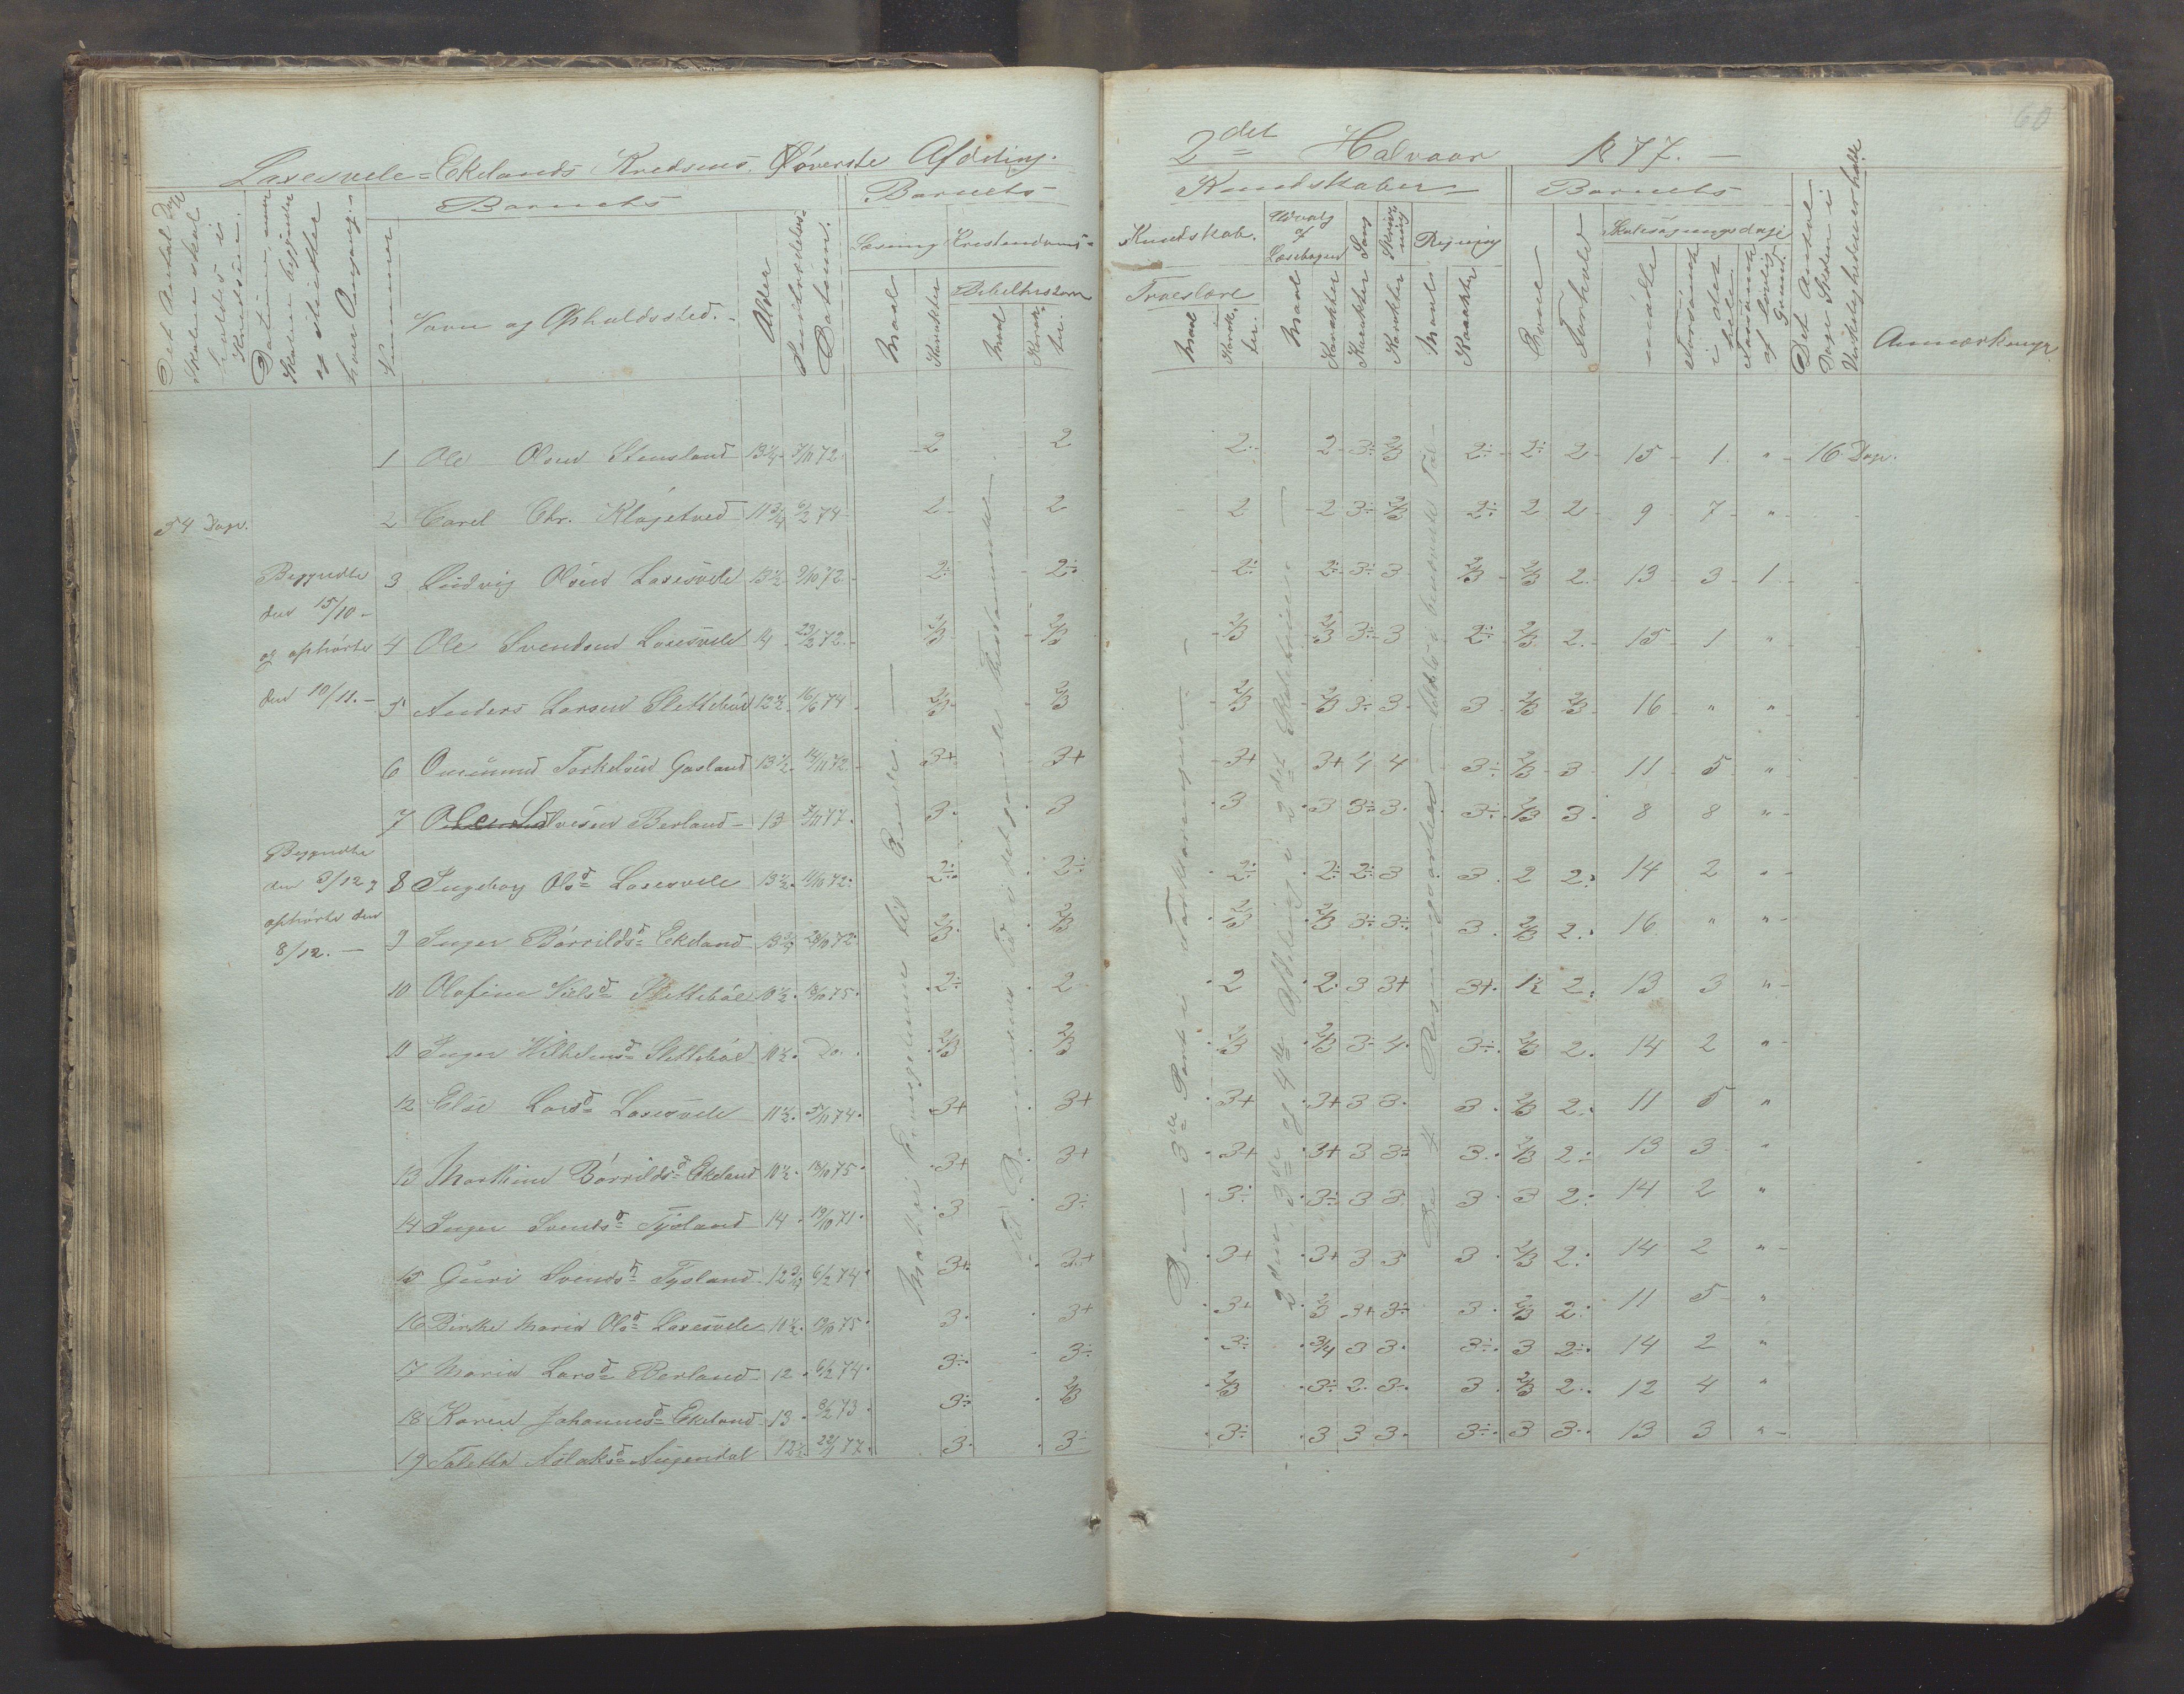 60
Laxesvele-Ekelands Kredsens Øóverste Afdeling.
2det Halvaar 1877.
Det Antal Dage Skolen skal holdes i Kredsen.
Datum, naar Skolen begynder og slutter hver Omgang.
Barnets
Nummer
Navn og Opholdssted.
Alder
Indtrædelses-Datum.
Barnets
Læsning
Maal
Karakter
Kristendoms-
Bibelhistorie
Maal
Karakter.
Kundskaber
Kundskab.
Troeslære
Maal
Karakter.
Udvalg af Læsebogen
Maal
Karakter
Sang
Karakter
Skrivning
Karakter
Regning
Maal
Karakter
Barnets
Evne
Forhold
Skolesøgningsdage
mødte
forsømte i det hele
forsømte af lovlig Grund.
Det Antal Dage Skolen i Virkeligheden er holdt
Anmærkninger
54 Dage.
Begyndte
den 15/10 -
og ophørte
den 10/11. -
Begyndte
den 3/12 og
ophørte den
8/12. -
1 Ole Olsen Stensland 13 1/4 7/11 72 2 2 2÷ 2 3÷ 2/3 2÷ 2÷ 2 15 1 " 16 Dage.
2 Carel Chr. Kløgetved 11 3/4 6/2 74 2 2 2 2 3÷ 2/3 2÷ 2 2 9 7 "
3 Ludvig Olsen Laxesvele 13 1/2 9/10 72 2÷ 2÷ 2÷ 2÷ 3÷ 3 2/3 2/3 2 13 3 1
4 Ole Svendsen Laxesvele 14 23/2 72 2/3 2/3 2/3 2/3 3÷ 3 2÷ 2/3 2 15 1 "
5 Anders Larsen Slettebøe 12 1/2 16/6 74 2/3 2/3 2/3 2/3 3÷ 3 3 2/3 2/3 16 " "
6 Omund Torkelsen Gosland 13 1/2 14/11 72 3+ 3+ 3+ 3+ 4 4 3÷ 2/3 3 11 5 "
7 Ole Berland 13 7/11 77 3 3 3 3 3÷ 3 3÷ 2/3 3 8 8 "
8 Ingeborg Olsd Laxesvele 13 1/2 11/10 72 2÷ 2÷ 2÷ 2÷ 2÷ 3 3 2 2÷ 14 2 "
9 Inger Børrildsd Ekeland 13 3/4 28/10 72 2/3 2/3 2/3 2/3 3÷ 3÷ 3 2/3 2÷ 16 " "
10 Olafine Nielsd Slettebøe 10 1/2 18/10 75 2÷ 2 2 2 3 3+ 3+ 1/2 2÷ 13 3 "
11 Inger Wilhelmsd Slettebøe 10 1/2 Do. 2/3 2/3 2/3 2/3 3÷ 4 3÷ 2/3 2 14 2 "
12 Else Larsd Laxesvele 11 1/2 5/11 74 3+ 3+ 3+ 3+ 3 3 3 2/3 2÷ 11 5 "
13 Marthine Børrildsd Ekeland 10 1/2 18/10 75 3+ 3+ 3+ 3+ 3 3÷ 3 2/3 2÷ 13 3 "
14 Inger Svendsd Tysland 14 19/10 71 3 3÷ 3÷ 3÷ 3 3 3 3 2÷ 14 2 "
15 Guri Svendsd Tysland 12 3/4 6/2 74 3+ 3+ 3+ 3+ 3 3 3 2/3 2÷ 14 2 "
16 Birthe Maria Olsd Laxesvele 10 1/2 18/10 75 3 3+ 3+ 2/3 3+ 3÷ 3 2/3 2÷ 11 5 "
17 Maria Larsd Berland 12 6/2 74 3÷ 3÷ 3÷ 3/4 3 3 3÷ 3 2÷ 14 2 "
18 Karen Johannesd Ekeland 13 8/2 73 3÷ 2/3 2/3 3÷ 2 3÷ 3 2/3 2÷ 12 4 "
19 Taletta Aslaksd Augendal 12 1/2 22/1 77 3 3÷ 3÷ 3 3 3 3÷ 3 3 13 3 "
Mathæi Evangelium til Ende.
Fra Dommernes Tid i det gamle Testamente
Den 3die Part i Forklaringen
2den, 3die og 4de Afdeling i 2det Skoletrin
De 4 Regningsarter